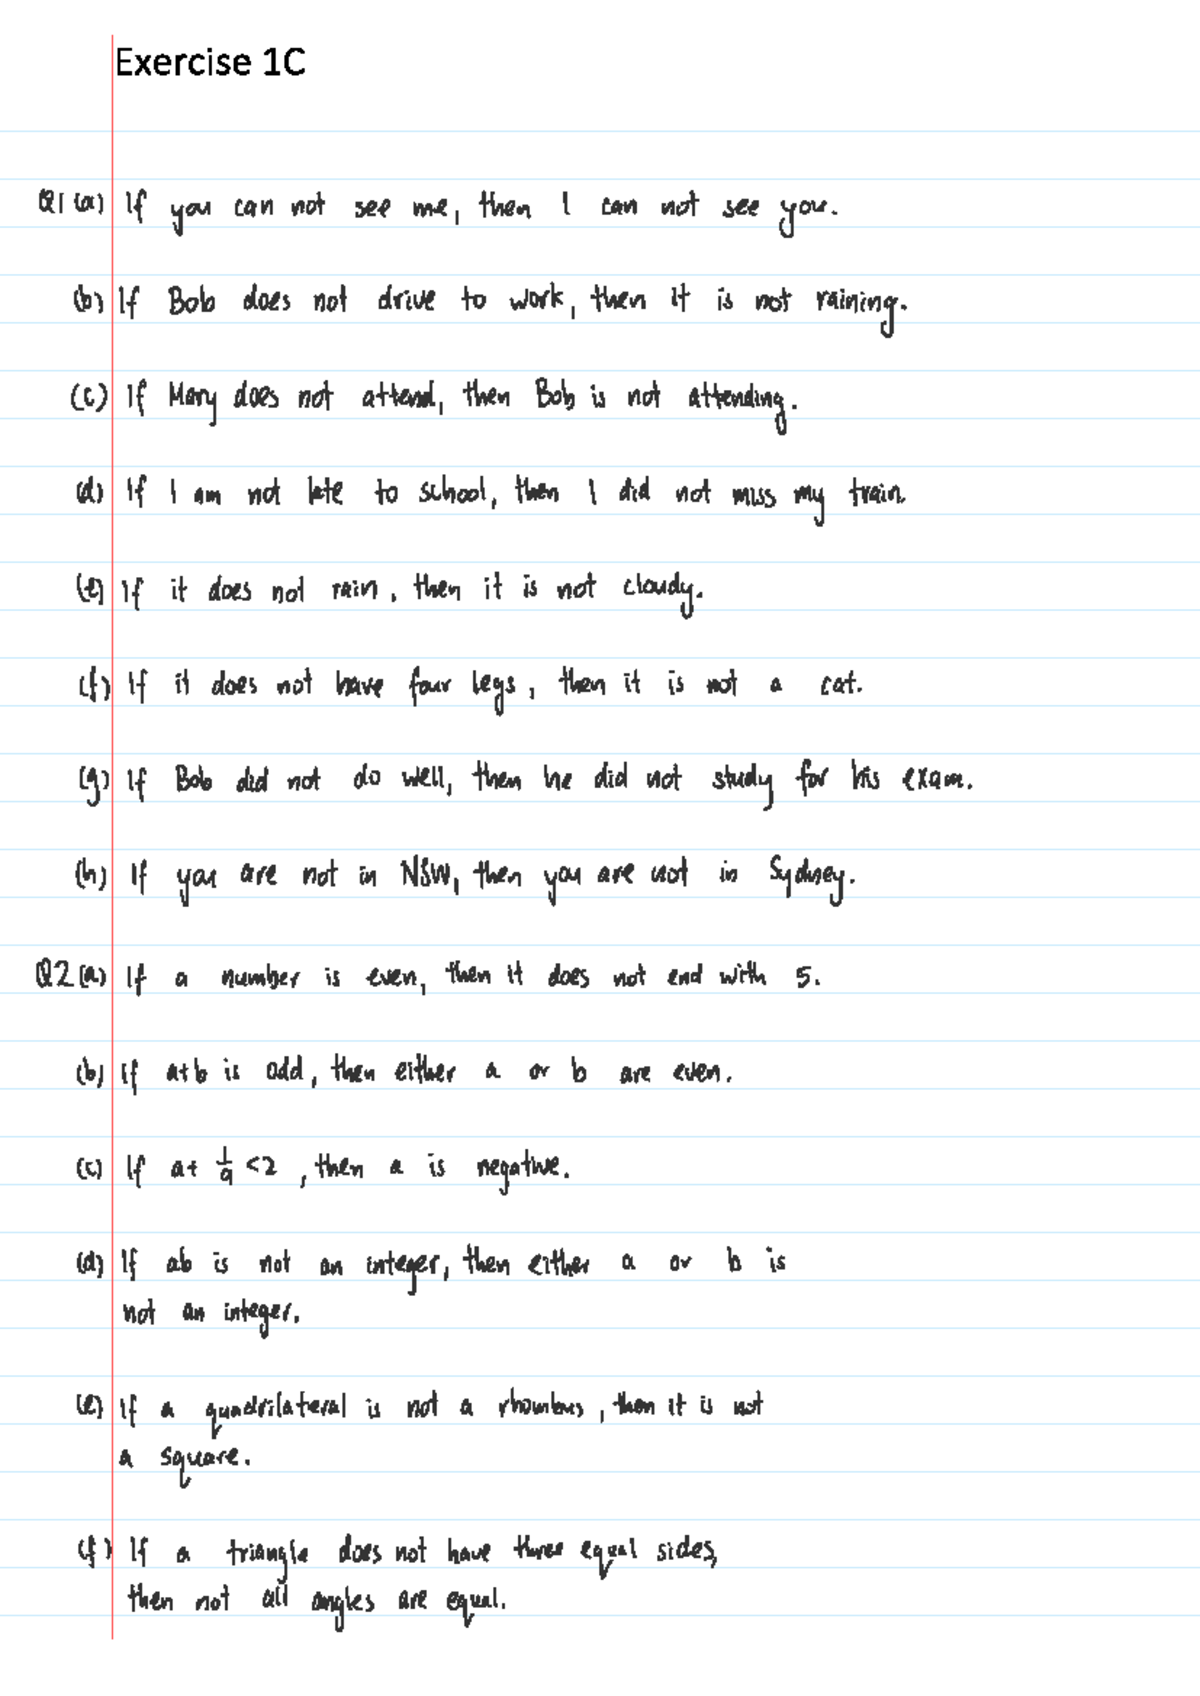 Exercise 1C
Q1 (a) If you can not see me, then I can not see you.
(b) If Bob does not drive to work, then it is not raining.
(c) If Mary does not attend, then Bob is not attending.
(d) If I am not late to school, then I did not miss my train.
(e) If it does not rain, then it is not cloudy.
(f) If it does not have four legs, then it is not a cat.
(g) If Bob did not do well, then he did not study for his exam.
(h) If you are not in NSW, then you are not in Sydney.
Q2 (a) If a number is even, then it does not end with 5.
(b) If a+b is odd, then either a or b are even.
(c) If a + 1/a < 2, then a is negative.
(d) If ab is not an integer, then either a or b is
not an integer.
(e) If a quadrilateral is not a rhombus, then it is not
a square.
(f) If a triangle does not have three equal sides,
then not all angles are equal.